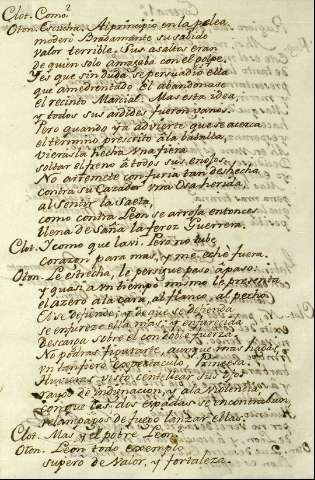 Clot. Como?
Oton. Escucha. Al principio en la pelea
moderò Bradamante su sabido
valor terrible. Sus asaltos eran
de quien solo amagaba con el golpe.
Yes que sin duda se persuadiò ella
que amedrentado El abandonase
el recinto Marcial. Mas esta idea,
y todos sus ardides fueron vanos.
Pero quando ya advierte que se acerca
el termino prescrito à la batalla,
vierasla hecha una fiera
soltar el freno à todos sus enojos.
No arremete con furia tan deshecha
contra su Cazador una Osa herida,
al sentir la Saeta,
como contra Leon se arroja entonces
llena de Saña la feroz Guerrera.
Clot. Y como que la vi. Pero no tube
corazon para mas, y me echè fuera.
Oton. Le estrecha, le persigue paso à paso.
y quasi à un tiempo mismo le presenta
el azero à la cara, al flanco, al pecho
El se defiende; y de que se defienda
se enfurece ella mas; y enfurecida
descarga sobre el con doble fuerza.
No podras figurarte, aunque mas hagas,
un tan fiero espectaculo Princesa.
Huvieras visto centellear sus ojos
rayos de indignacion, y à la violencia
con que las dos espadas se encontraban
relampagos de fuego lanzar ellas.
Clot. Mas y el pobre Leon.
Oton. Leon todo exemplo
superò de Valor, y fortaleza.